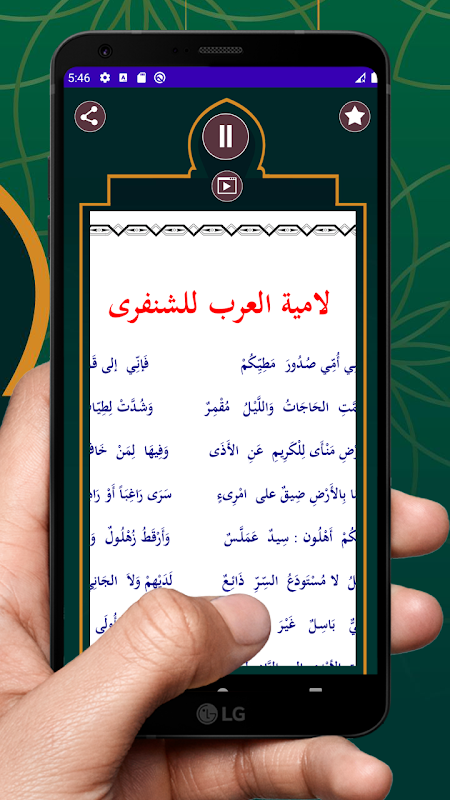 5:46
لامية العرب للشنفرى
أُمِّي صُدُورَ مَطِيِّكُمْ فَإِنِّي إلى
الحَاجَاتُ وَاللَّيْلُ مُقْمِرٌ وَشُدَّتْ
مَنْأَى لِلْكَرِيمِ عَنِ الأَذَى وَفِيهَا لِمَنْ
بِالأَرْضِ ضِيقٌ على امْرِىءٍ سَرَى رَاغِبَاً أَوْ
أَهْلُون : سِيدٌ عَمَلَّسٌ وَأَرْقَطُ زُهْلُولٌ
لا مُسْتَودَعُ السِّرِّ ذَائِعٌ لَدَيْهِمْ وَلاَ الجَانِي
بَاسِلٌ غَيْرَ أُولَى
LG